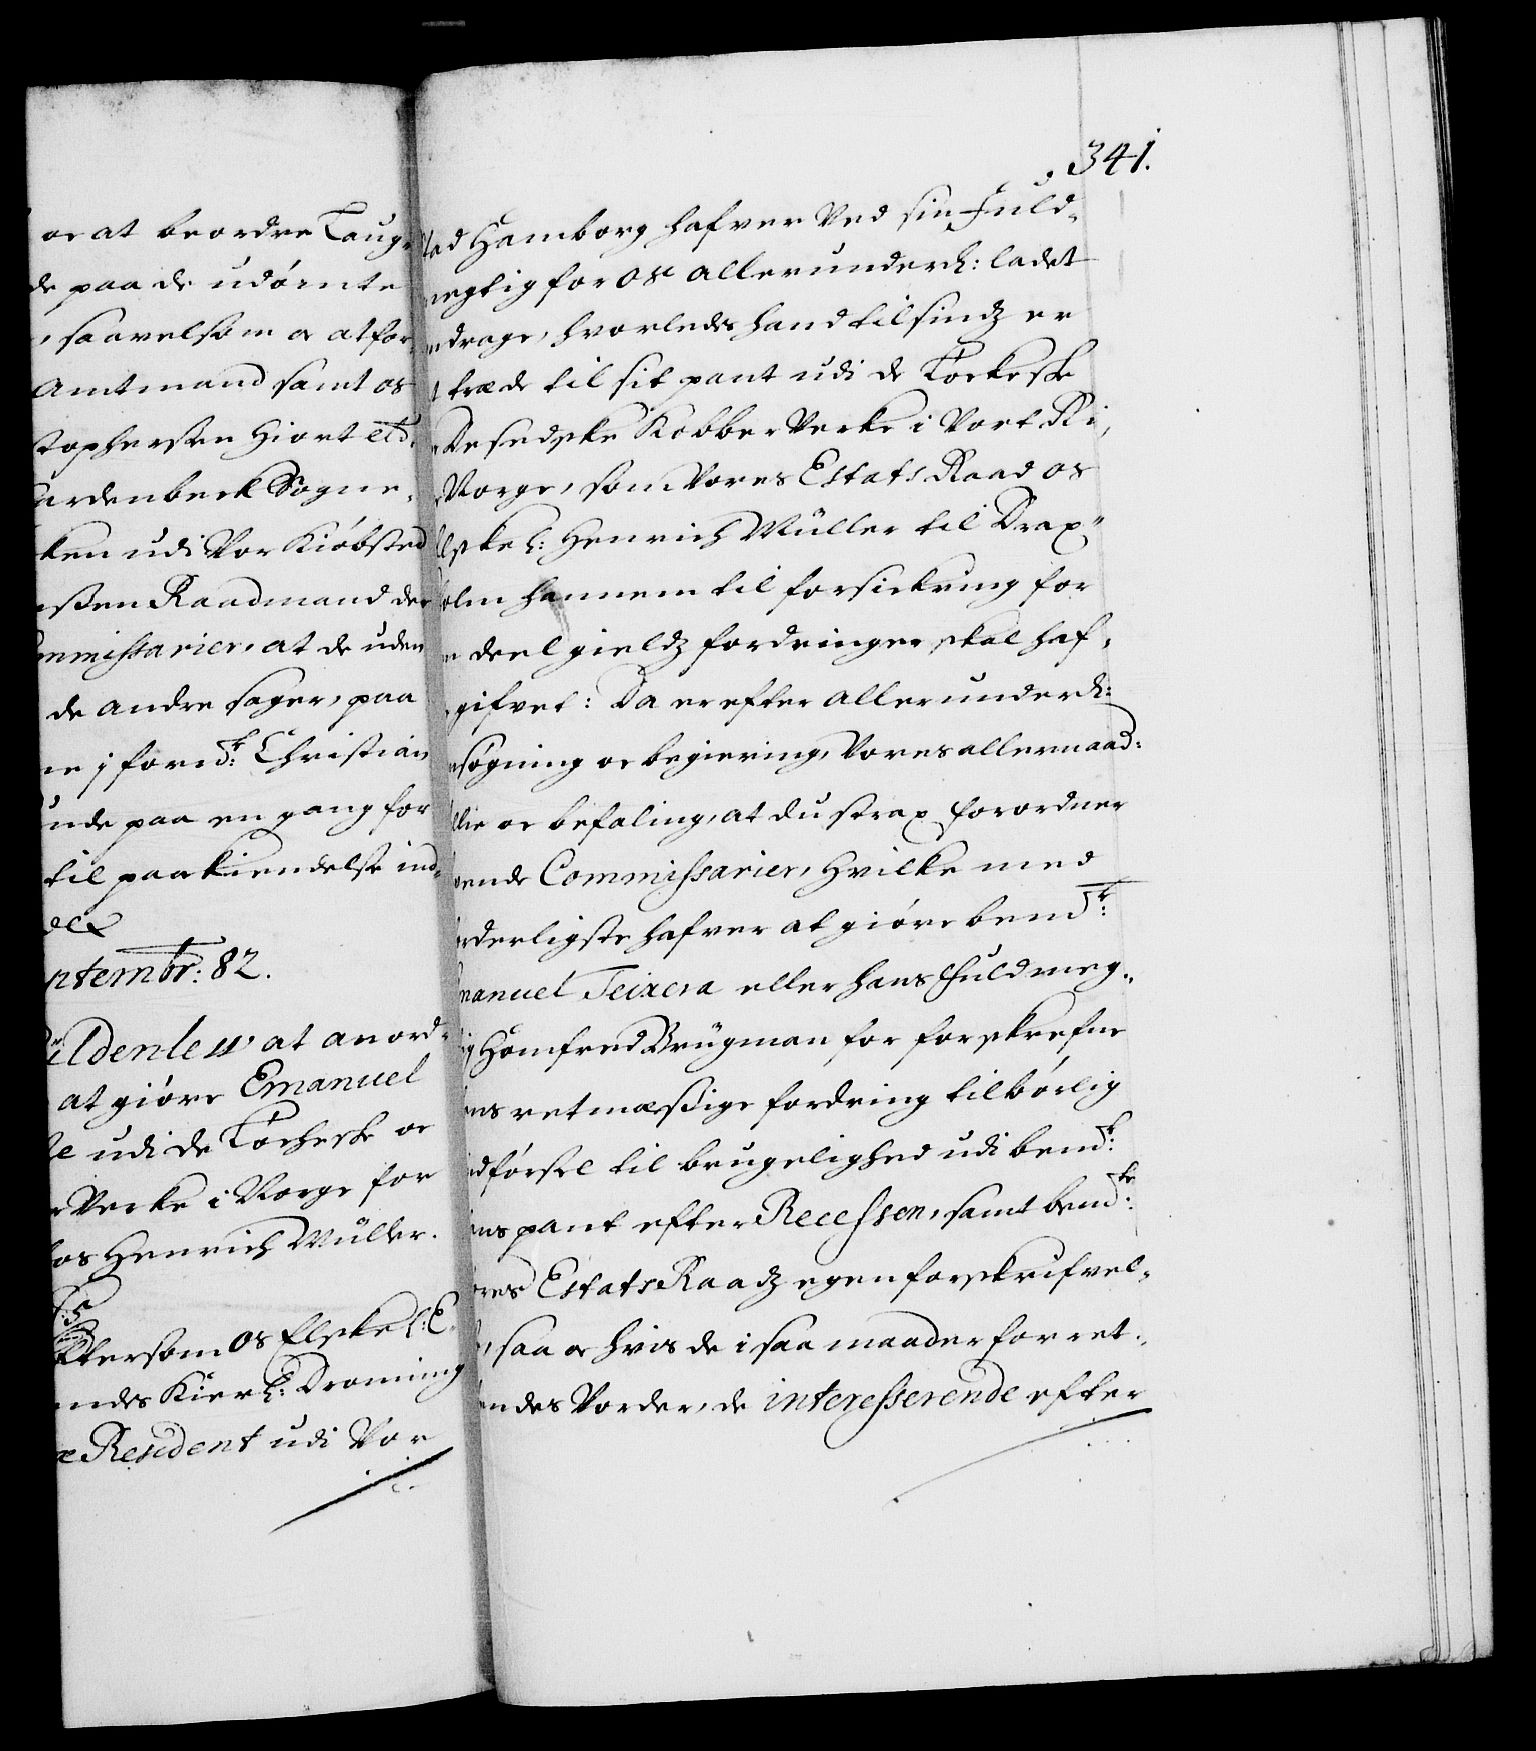 oc at beordre Laug-
de paa de udømte
, saavelsom oc at for-
Amtmand samt os
stophersen Hiort etd.
ardenbeck Sogne-
ken udi Vor Kiøbsted
ßen Raadmand der
ommissarier, at de uden
de andre sager, paa
ne j forn.te Christian
unde paa en gang for
til paakiendelse ind-
ptembr: 82.
Gÿldenlew at anord-
at giøre Emanuel
udi de Lockeske oc
r Verke i Norge for
os Henrich Müller.
Eftersom os Elskel: E-
ndes Kierl: Dronning
e Resident udi Vor
341.
tad Hamborg hafver Ved sin Fuld-
megtig for os allerunderd: ladet
ndrage, hvorledes hand tilsindz er
t træde til sit pant udi de Lockeske
Kobber Verke i Vort Ri,
Norge, som Vores Estats Raad os
Elskel: Henrich Müller til Drax-
olm hannem til forsickring for
n deel gieldz fordringer skal haf-
gifvet: Da er efter allerunderd:
nsøgning oc begiering, Vores allernaad:
llie oc befaling, at du strax forordner
vende Commissarier, Hvilke med
orderligste hafver at giøre bem.te
manuel Teixera eller hans Fuldmeg-
ig Homfred Brügman for forskrefne
ans retmæßige fordring tilbørlig
ndførsel til brugelighed udi bem.te
ans pant efter Recessen, samt bem.te
ores Estats Raadz egen forskrifvel-
, saa oc hvis de i saa maader forret-
endes Vorder, de interesserende efter